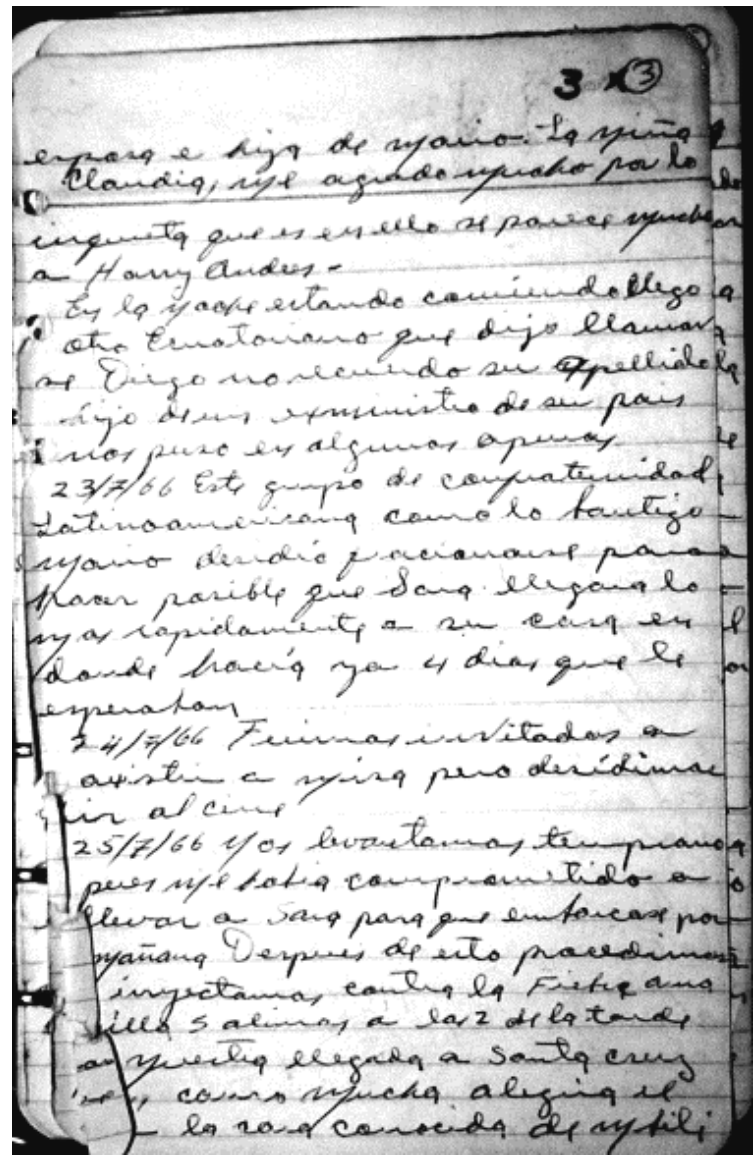 3 x ③
esposa e hija de Mario. La niña
Claudia, me agrado mucho por lo
inquieta que es en ello se parece mucho
a Harry Andres -
En la noche estando comiendo llego
otro Ecuatoriano que dijo llamar
se Diego no recuerdo su apellido
hijo de un exministro de su pais
nos puso en algunos apuros
23/7/66 Este grupo de confraternidad
Latinoamericana como lo bautizo
Mario desidió para
hacer posible que Sara llegara lo
mas rapidamente a su casa en
donde hacia ya 4 dias que le
esperaban
24/7/66 Fuimos invitados a
asistir a misa pero desidimos
ir al cine
25/7/66 Nos levantamos temprano
pues me habia comprometido a
llevar a Sara para que embarcase por
mañana Despues de esto procedimos
inyectamos contra la Fiebre ama
illa Salimos a las 2 de la tarde
nuestra llegada a Santa cruz
como mucha alegria el
la conocida de